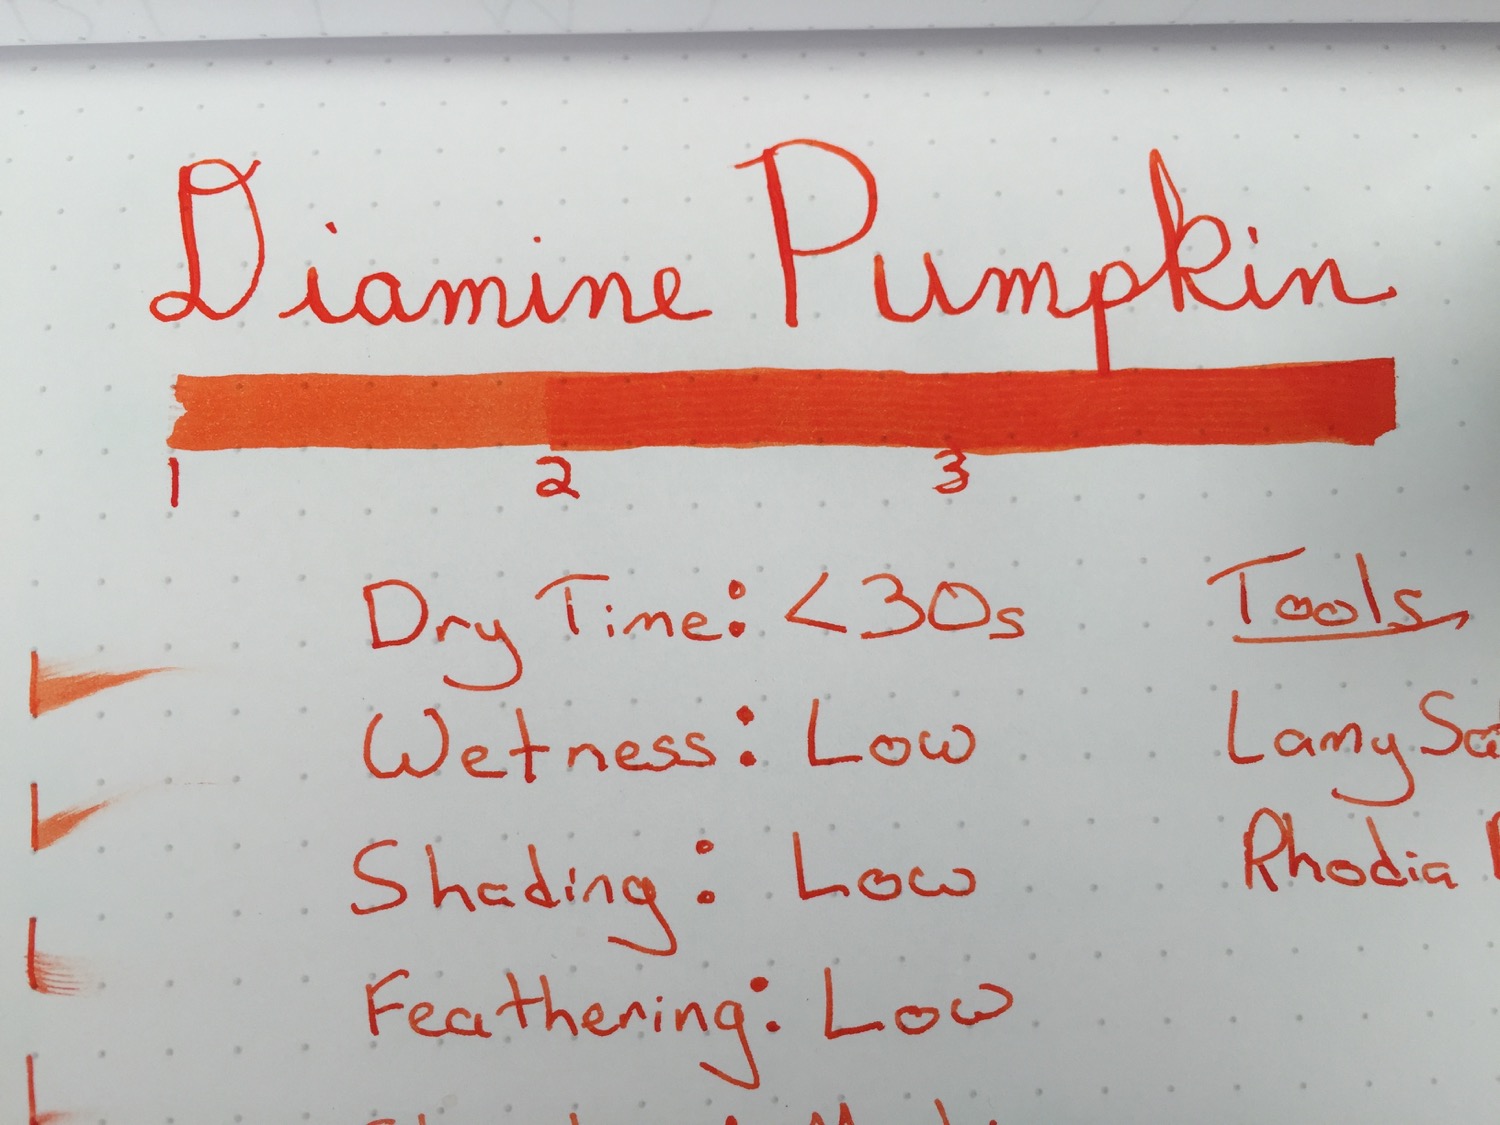 Diamine Pumpkin
1 2 3
Dry Time: <30s
Wetness: Low
Shading: Low
Feathering: Low
Tools
Lamy
Rhodia